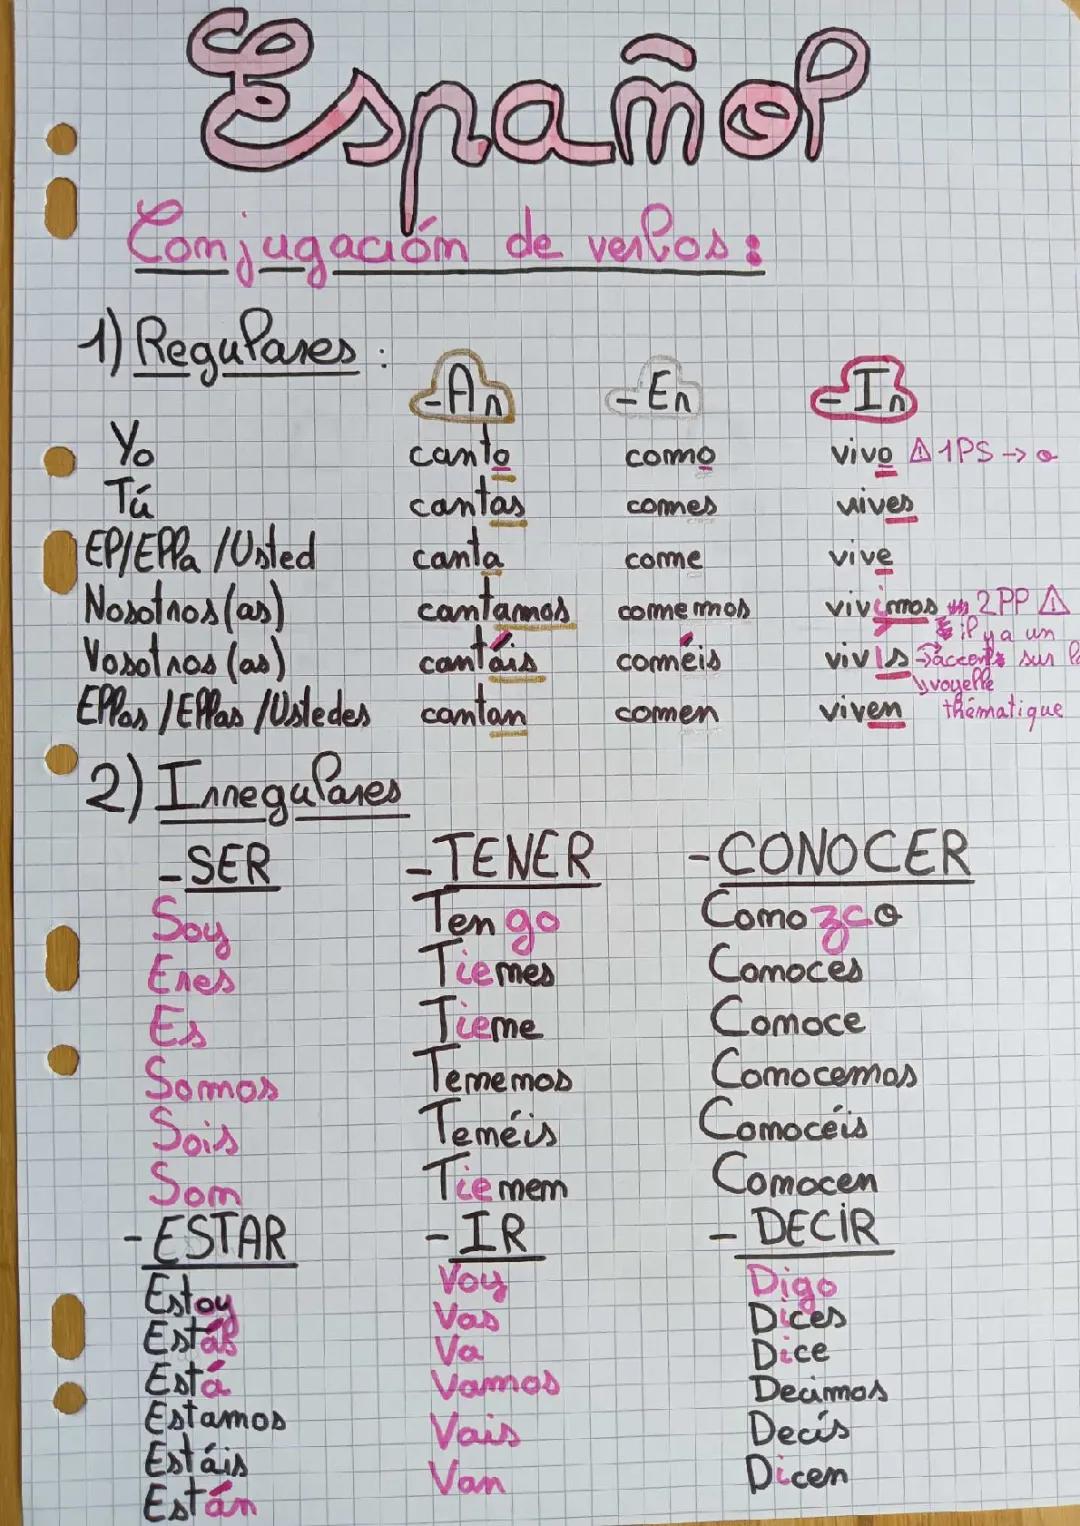 Español
Conjugación de verbos :
1) Regulares :
-Ar -Er -Ir
Yo canto como vivo ⚠ 1PS → o
Tú cantas comes vives
El/Ella /Usted canta come vive
Nosotros (as) cantamos comemos vivimos 2PP ⚠
il y a un
Vosotros (as) cantáis coméis vivís → accent sur la
voyelle
thématique
Ellos /Ellas /Ustedes cantan comen viven
2) Irregulares
-SER -TENER -CONOCER
Soy Tengo Conozco
Eres Tienes Conoces
Es Tiene Conoce
Somos Tenemos Conocemos
Sois Tenéis Conocéis
Son Tienen Conocen
-ESTAR -IR -DECIR
Estoy Voy Digo
Estás Vas Dices
Está Va Dice
Estamos Vamos Decimos
Estáis Vais Decís
Están Van Dicen